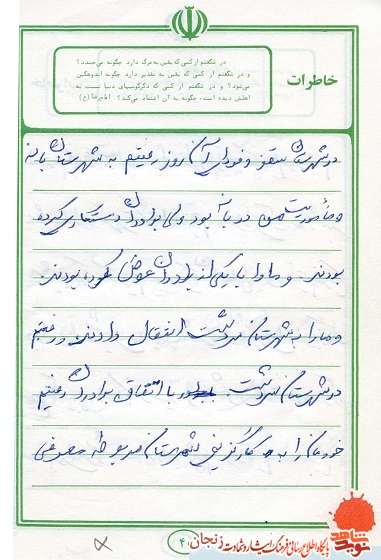 خاطرات
در شگفتم از کسی که یقین به مرگ دارد چگونه می‌خندد؟
و در شگفتم از کسی که یقین به تقدیر دارد چگونه اندوهگین
می‌شود؟ و در شگفتم از کسی که دگرگونیهای دنیا نسبت به
اهلش دیده است، چگونه به آن اعتماد می‌کند؟ امام‌رضا (ع)
در شهرستان سقز و فردای آن روز رفتیم به شهرستان بانه
و مأموریت من در بانه بود ولی برادران دستکاری کرده
بودند. و ما را با یکی از برادران عوض کرده بودند.
و ما را به شهرستان سردشت انتقال دادند. و رفتیم
در شهرستان سردشت. با اتفاق برادران رفتیم
خودمان را به کارگزینی شهرستان مربوطه معرفی
۴۰
پایگاه اطلاع رسانی فرهنگ ایثار و شهادت زنجان
نوید شاهد